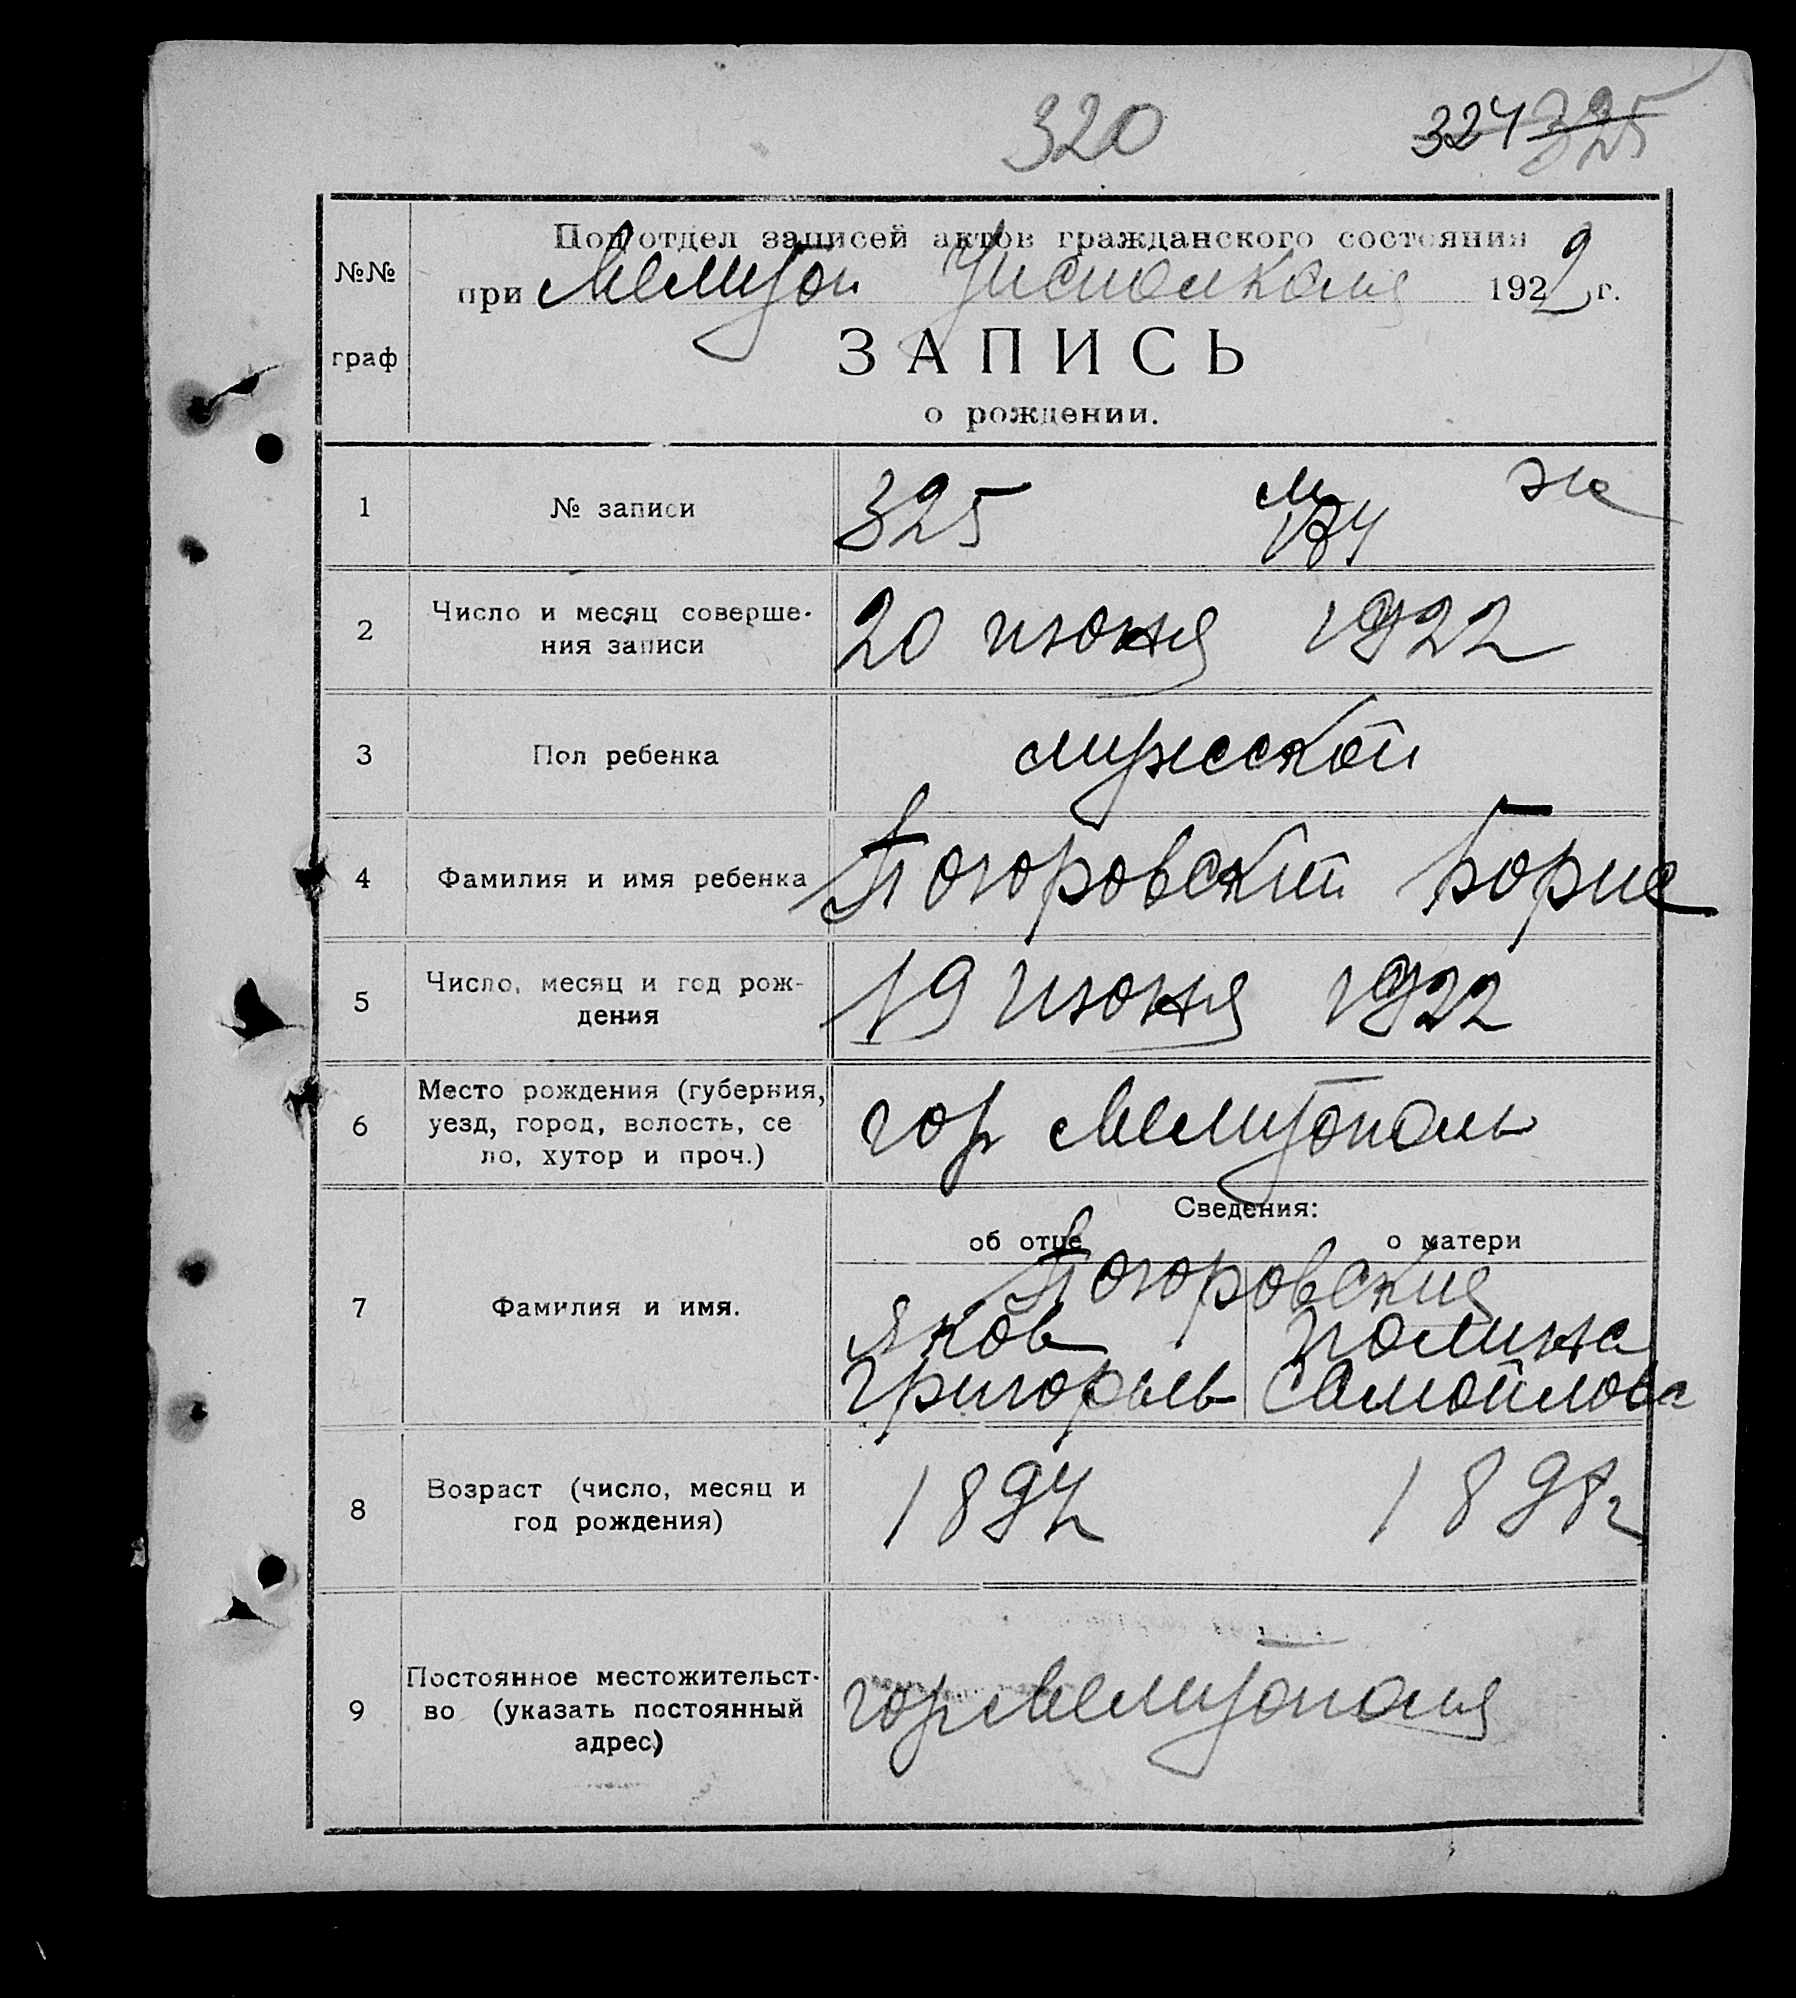 320
324 325
№№ граф
Подотдел записей актов гражданского состояния
при Мелитоп Уисполкома 1922 г.
ЗАПИСЬ
о рождении.
1 № записи 325 м ж
174
2 Число и месяц соверше- 20 июня 1922
ния записи
3 Пол ребенка мужской
4 Фамилия и имя ребенка Погоровский Борис
5 Число, месяц и год рож- 19 июня 1922
дения
6 Место рождения (губерния,
уезд, город, волость, се гор Мелитополь
ло, хутор и проч.)
Сведения:
об отце о матери
Погоровские
7 Фамилия и имя. Яков Полина
Григорьев Самойлова
8 Возраст (число, месяц и 1897 1898 г
год рождения)
Постоянное местожительст-
9 во (указать постоянный гор Мелитополя
адрес)